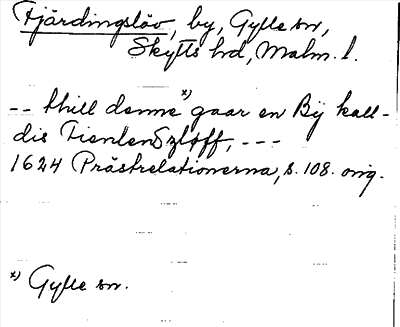 Fjärdingslöv, by, Gylle sn,
Skytts hd, Malm. l.
-- thill denne *) gaar en Bÿ kall-
dis Fienlen Szløff, ---
1624 Prästrelationerna, s. 108. orig.
*) Gylle sn.